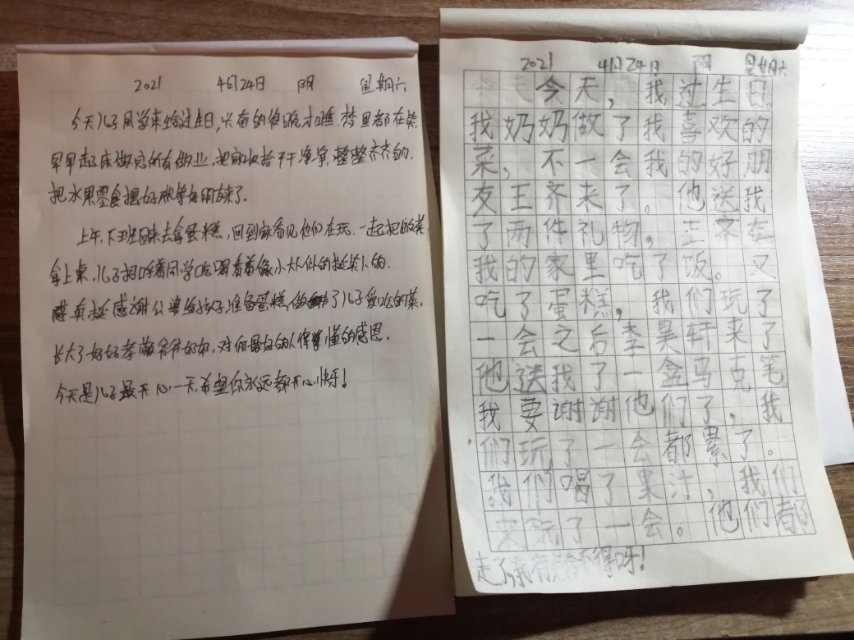 2021 4月24日 阴 星期六
今天儿子同学来给过生日,兴奋的很晚才睡,梦里都在笑,
早早起床做完所有作业,把家收拾干干净净,整整齐齐的,
把水果零食摆好就等好朋友来了。
上午下班回来去拿蛋糕,回到家看见他们在玩,一起把饭菜
拿上桌,儿子招呼着同学吃喝看着像小大人似的挺
感谢公婆给孩子准备蛋糕,做了儿子爱吃的菜,
长大了好好孝敬爷爷奶奶,对你最好的人得懂的感恩,
今天是儿子最开心一天,希望你永远都开心快乐!
2021 4月24日 阴 星期六
今天,我过生日。
我奶奶做了我喜欢的
菜,不一会我的好朋
友王齐来了。他送我
了两件礼物,王齐在
我的家里吃了饭。又
吃了蛋糕,我们玩了
一会之后李昊轩来了
他送我了一盒马克笔
我要谢谢他们了,我
们玩了一会都累了。
我们喝了果汁,我们
又玩了一会。他们都
走了,我有点舍不得呀!